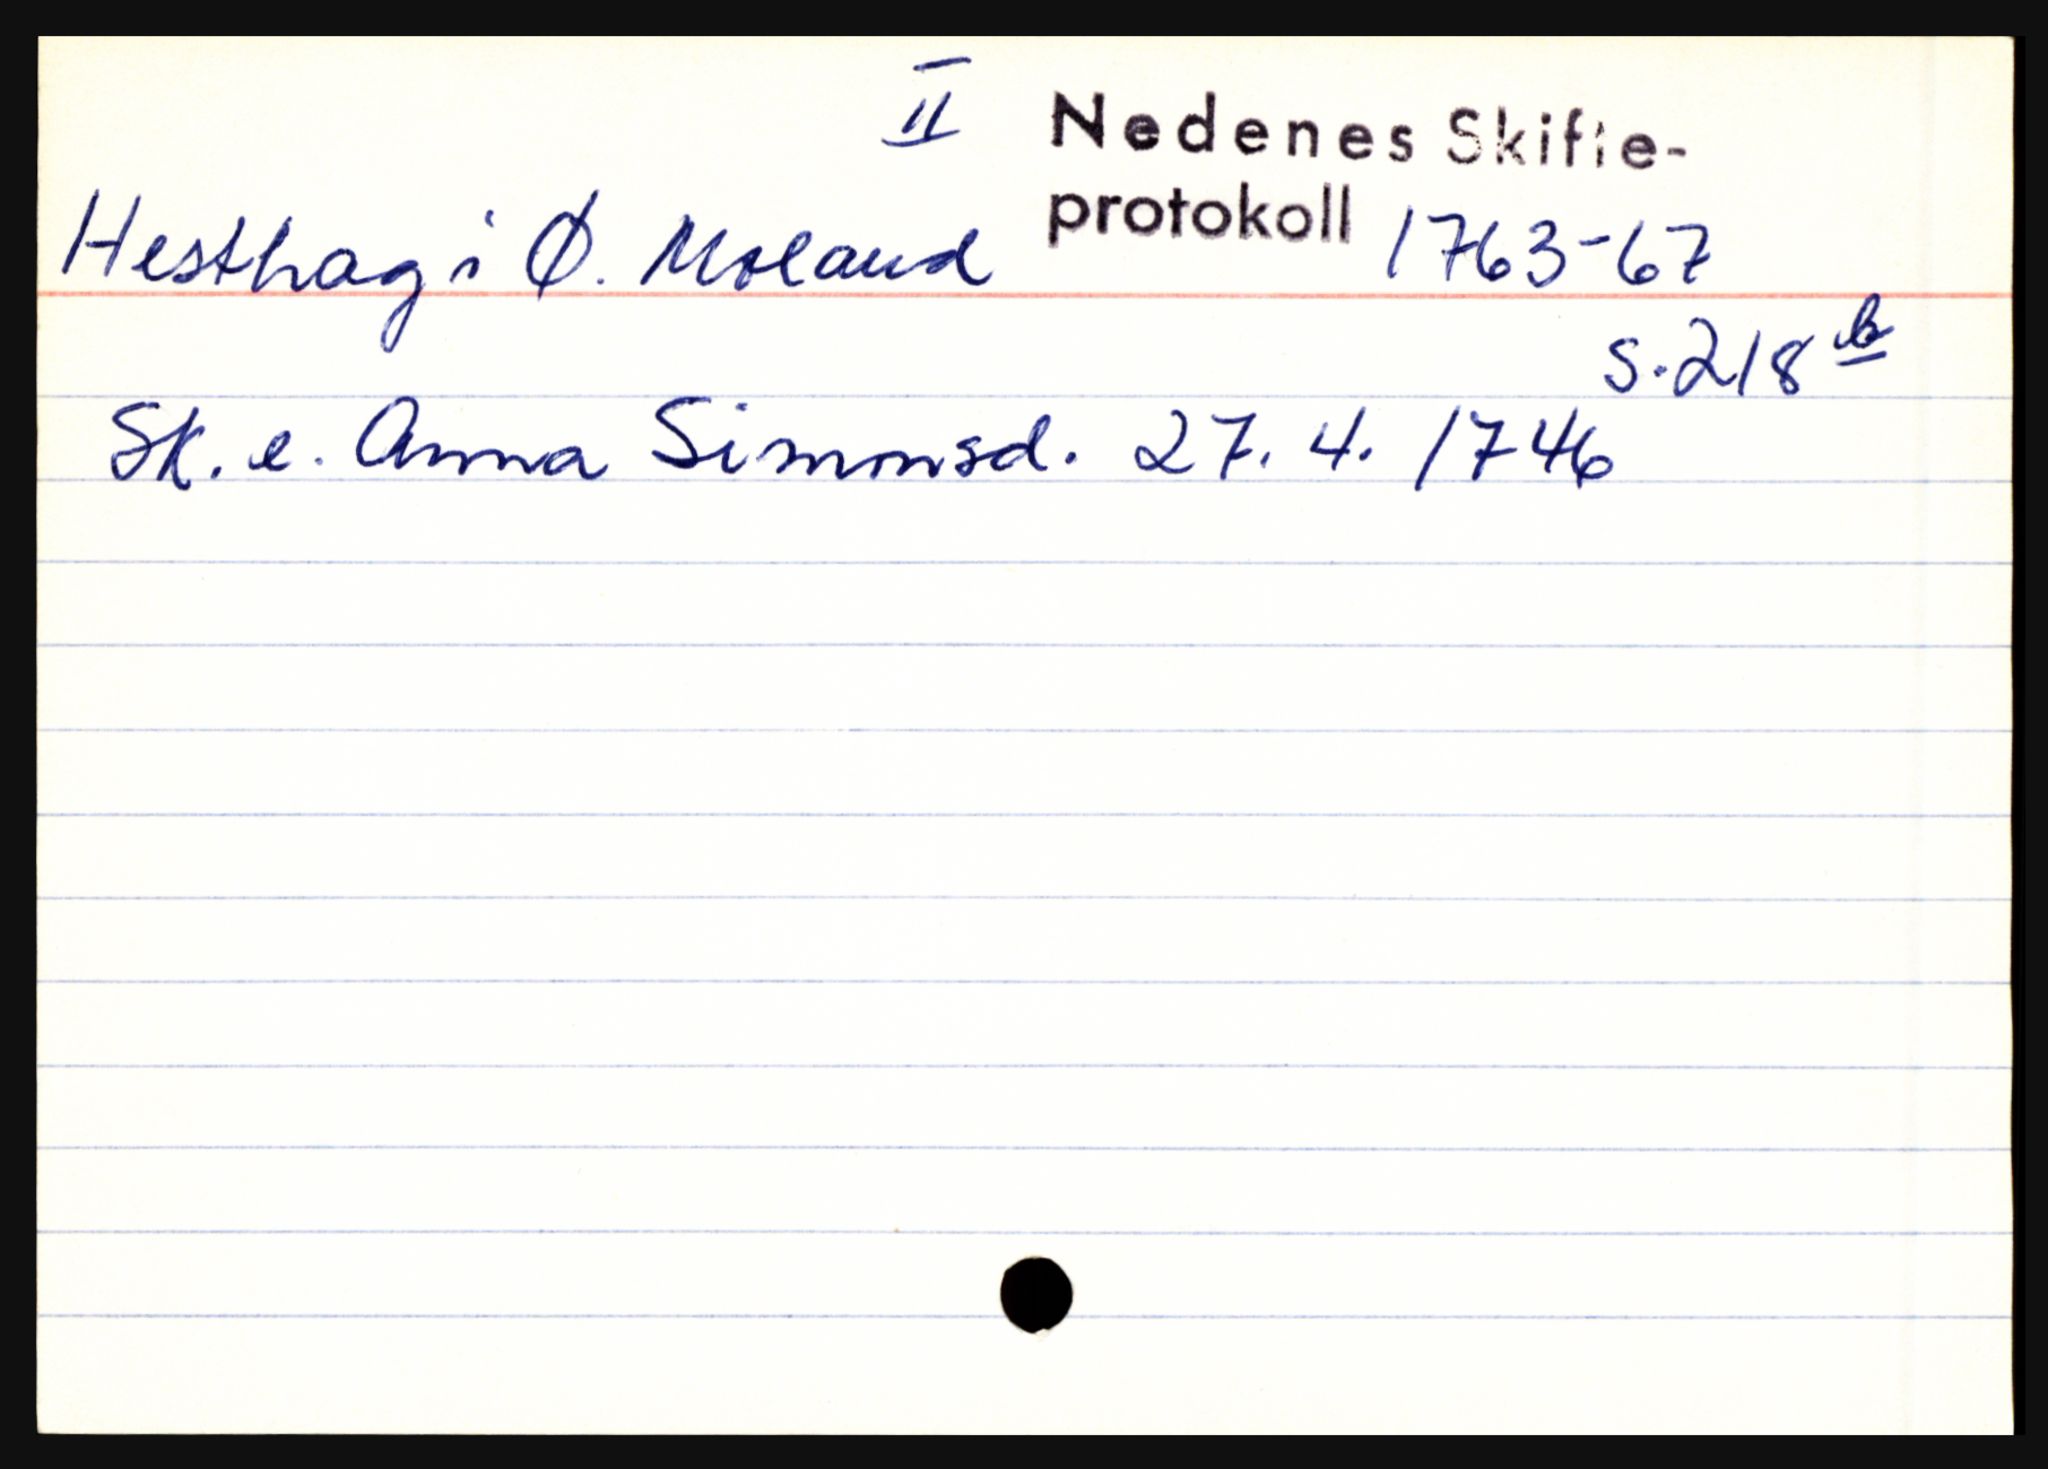 II Nedenes Skifte-
protokoll 1763-67
Hesthag i Ø. Moland
s. 218 b
Sk. e. Anna Simonsd. 27. 4. 1746